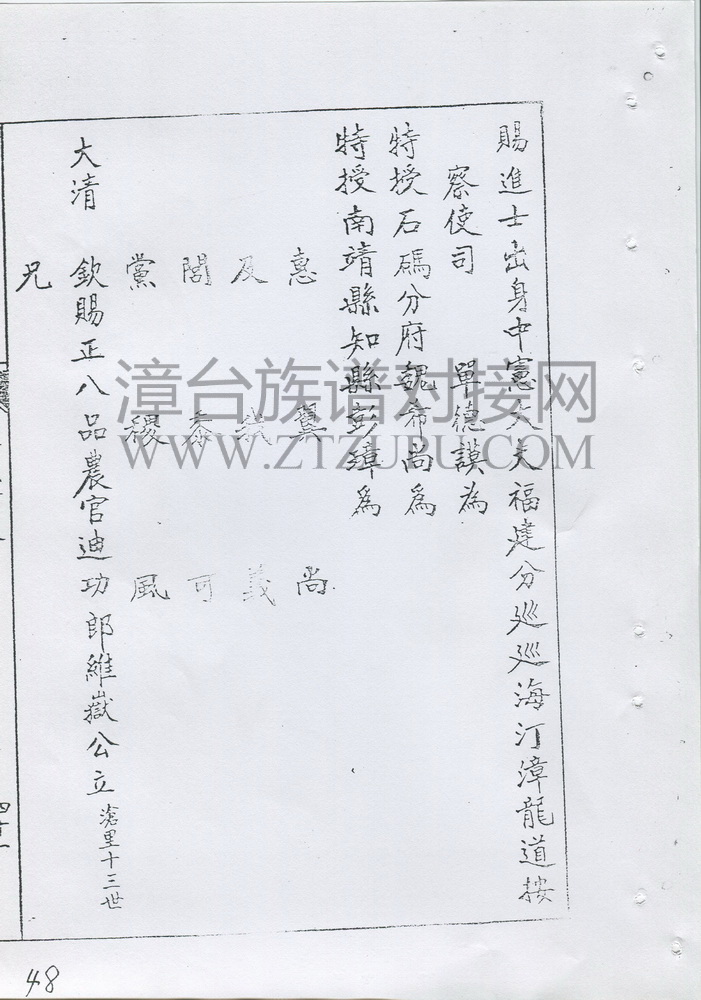 賜進士出身中憲大夫福建分巡巡海汀漳龍道按
察使司 單德謨為
特授石碼分府魏 尚為
特授南靖縣知縣彭 為
惠及閭黨
翼我黍稷
尚義可風
大清 欽賜正八品農官迪功郎維嶽公立 滄里十三世
兄
漳台族谱对接网
WWW.ZTZUPU.COM
48